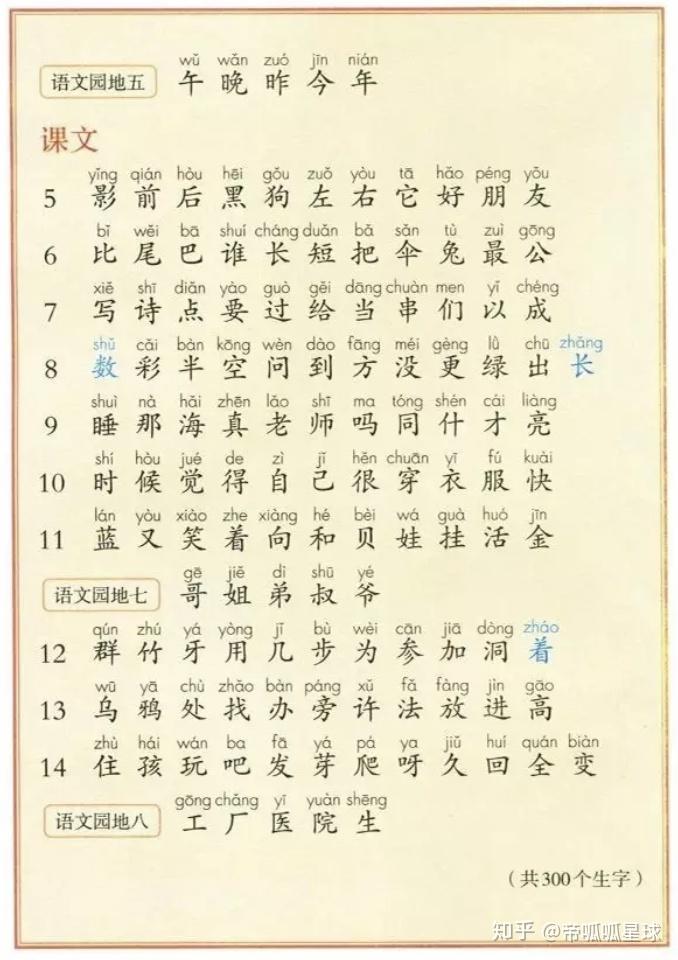 wǔ wǎn zuó jīn nián
语文园地五 午 晚 昨 今 年
课文
yǐng qián hòu hēi gǒu zuǒ yòu tā hǎo péng yǒu
5 影 前 后 黑 狗 左 右 它 好 朋 友
bǐ wěi bā shuí cháng duǎn bǎ sǎn tù zuì gōng
6 比 尾 巴 谁 长 短 把 伞 兔 最 公
xiě shī diǎn yào guò gěi dāng chuàn men yǐ chéng
7 写 诗 点 要 过 给 当 串 们 以 成
shǔ cǎi bàn kōng wèn dào fāng méi gèng lǜ chū zhǎng
8 数 彩 半 空 问 到 方 没 更 绿 出 长
shuì nà hǎi zhēn lǎo shī ma tóng shén cái liàng
9 睡 那 海 真 老 师 吗 同 什 才 亮
shí hòu jué de zì jǐ hěn chuān yī fú kuài
10 时 候 觉 得 自 己 很 穿 衣 服 快
lán yòu xiào zhe xiàng hé bèi wá guà huó jīn
11 蓝 又 笑 着 向 和 贝 娃 挂 活 金
gē jiě dì shū yé
语文园地七 哥 姐 弟 叔 爷
qún zhú yá yòng jǐ bù wèi cān jiā dòng zháo
12 群 竹 牙 用 几 步 为 参 加 洞 着
wū yā chù zhǎo bàn páng xǔ fǎ fàng jìn gāo
13 乌 鸦 处 找 办 旁 许 法 放 进 高
zhù hái wán ba fā yá pá ya jiǔ huí quán biàn
14 住 孩 玩 吧 发 芽 爬 呀 久 回 全 变
gōng chǎng yī yuàn shēng
语文园地八 工 厂 医 院 生
（共300个生字）
知乎 @帝呱呱星球